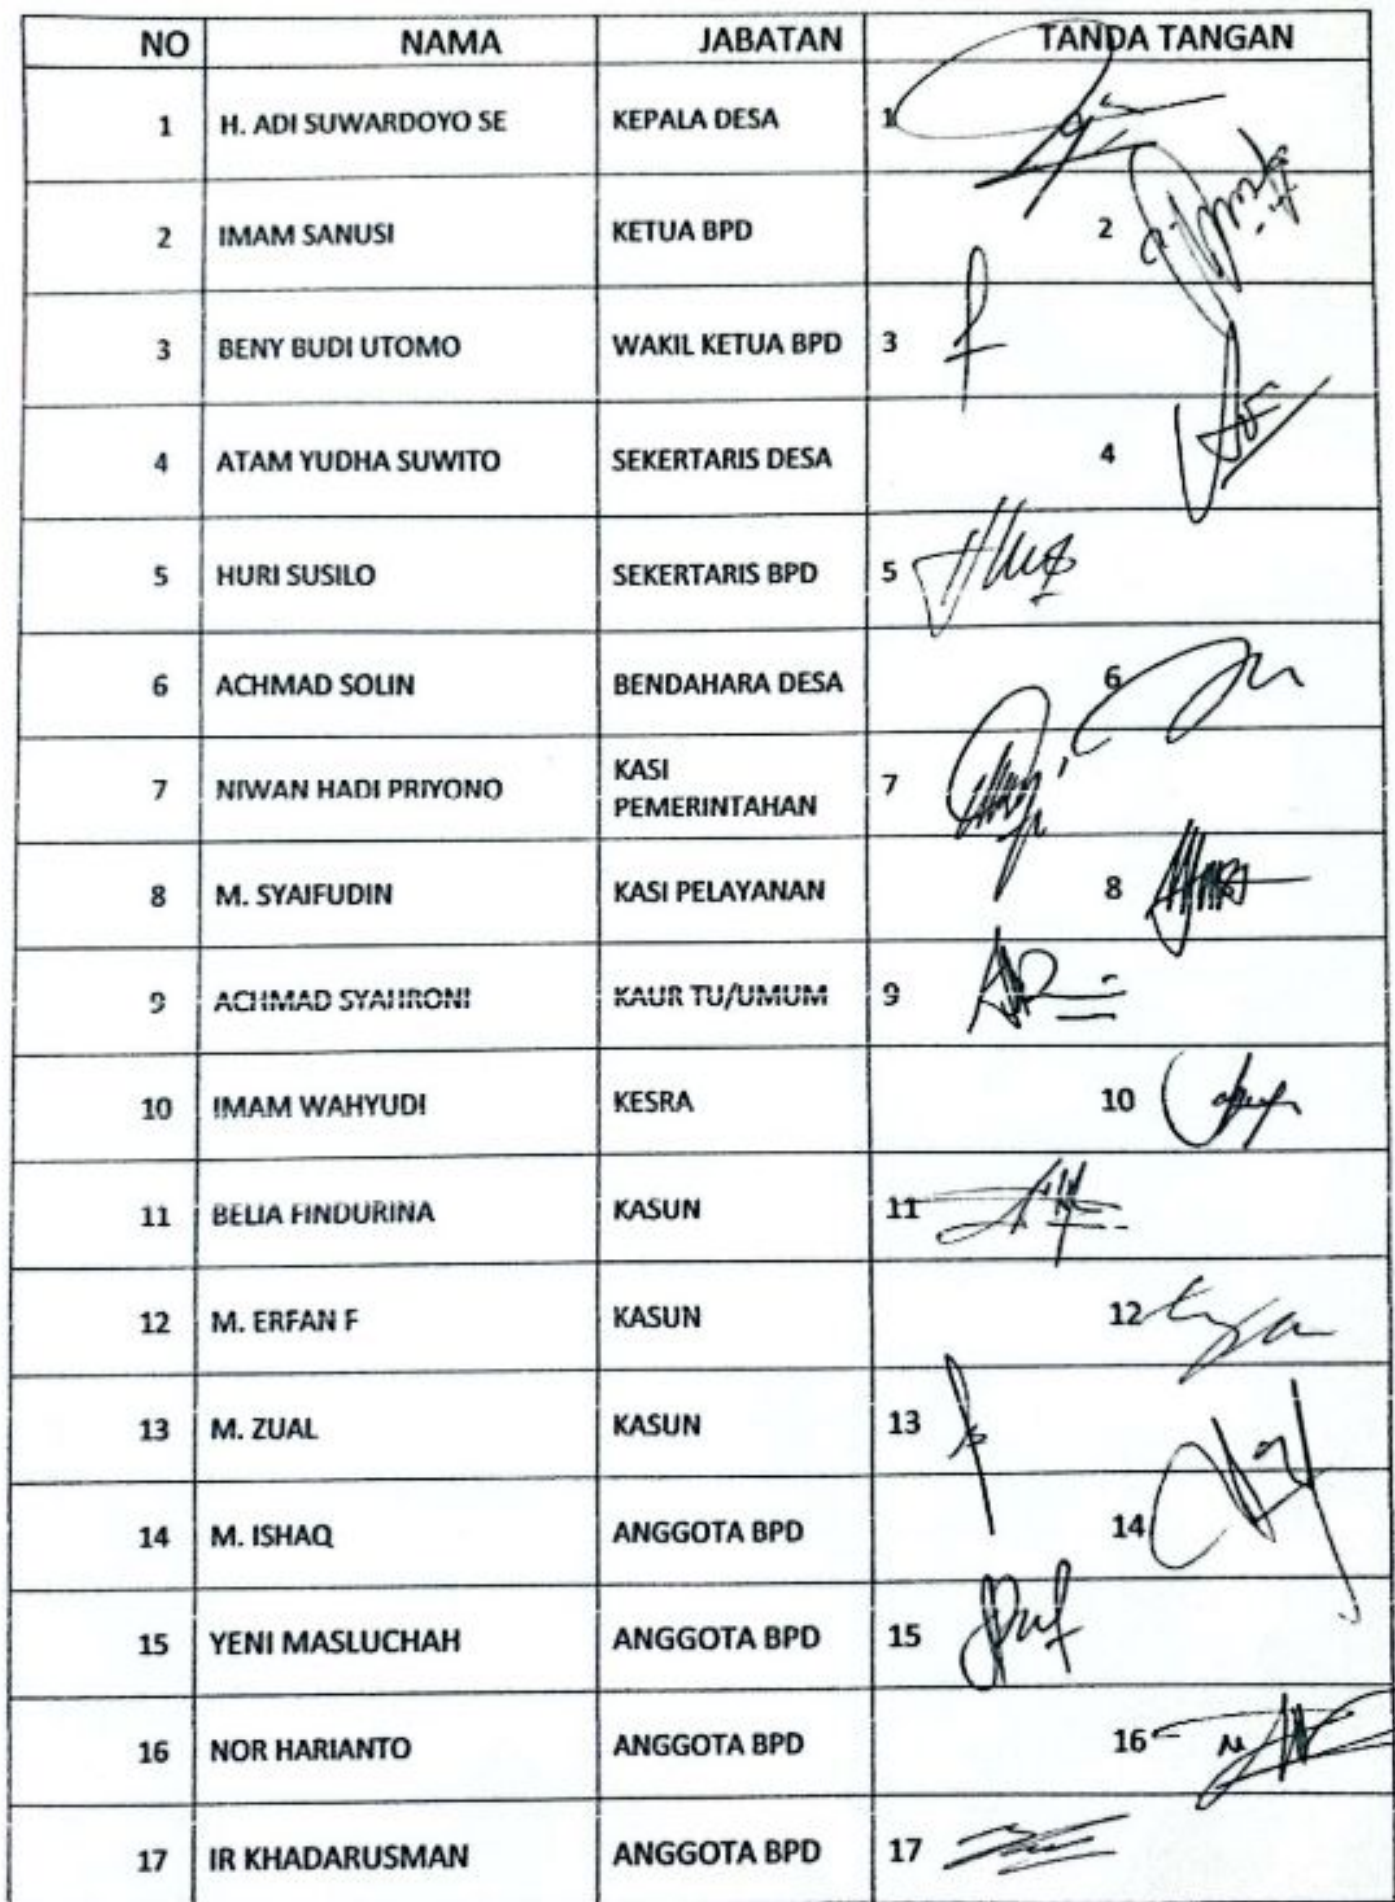 NO NAMA JABATAN TANDA TANGAN
1 H. ADI SUWARDOYO SE KEPALA DESA 1
2 IMAM SANUSI KETUA BPD 2
3 BENY BUDI UTOMO WAKIL KETUA BPD 3
4 ATAM YUDHA SUWITO SEKERTARIS DESA 4
5 HURI SUSILO SEKERTARIS BPD 5
6 ACHMAD SOLIN BENDAHARA DESA 6
7 NIWAN HADI PRIYONO KASI 7
PEMERINTAHAN
8 M. SYAIFUDIN KASI PELAYANAN 8
9 ACHMAD SYAHRONI KAUR TU/UMUM 9
10 IMAM WAHYUDI KESRA 10
11 BELIA FINDURINA KASUN 11
12 M. ERFAN F KASUN 12
13 M. ZUAL KASUN 13
14 M. ISHAQ ANGGOTA BPD 14
15 YENI MASLUCHAH ANGGOTA BPD 15
16 NOR HARIANTO ANGGOTA BPD 16
17 IR KHADARUSMAN ANGGOTA BPD 17